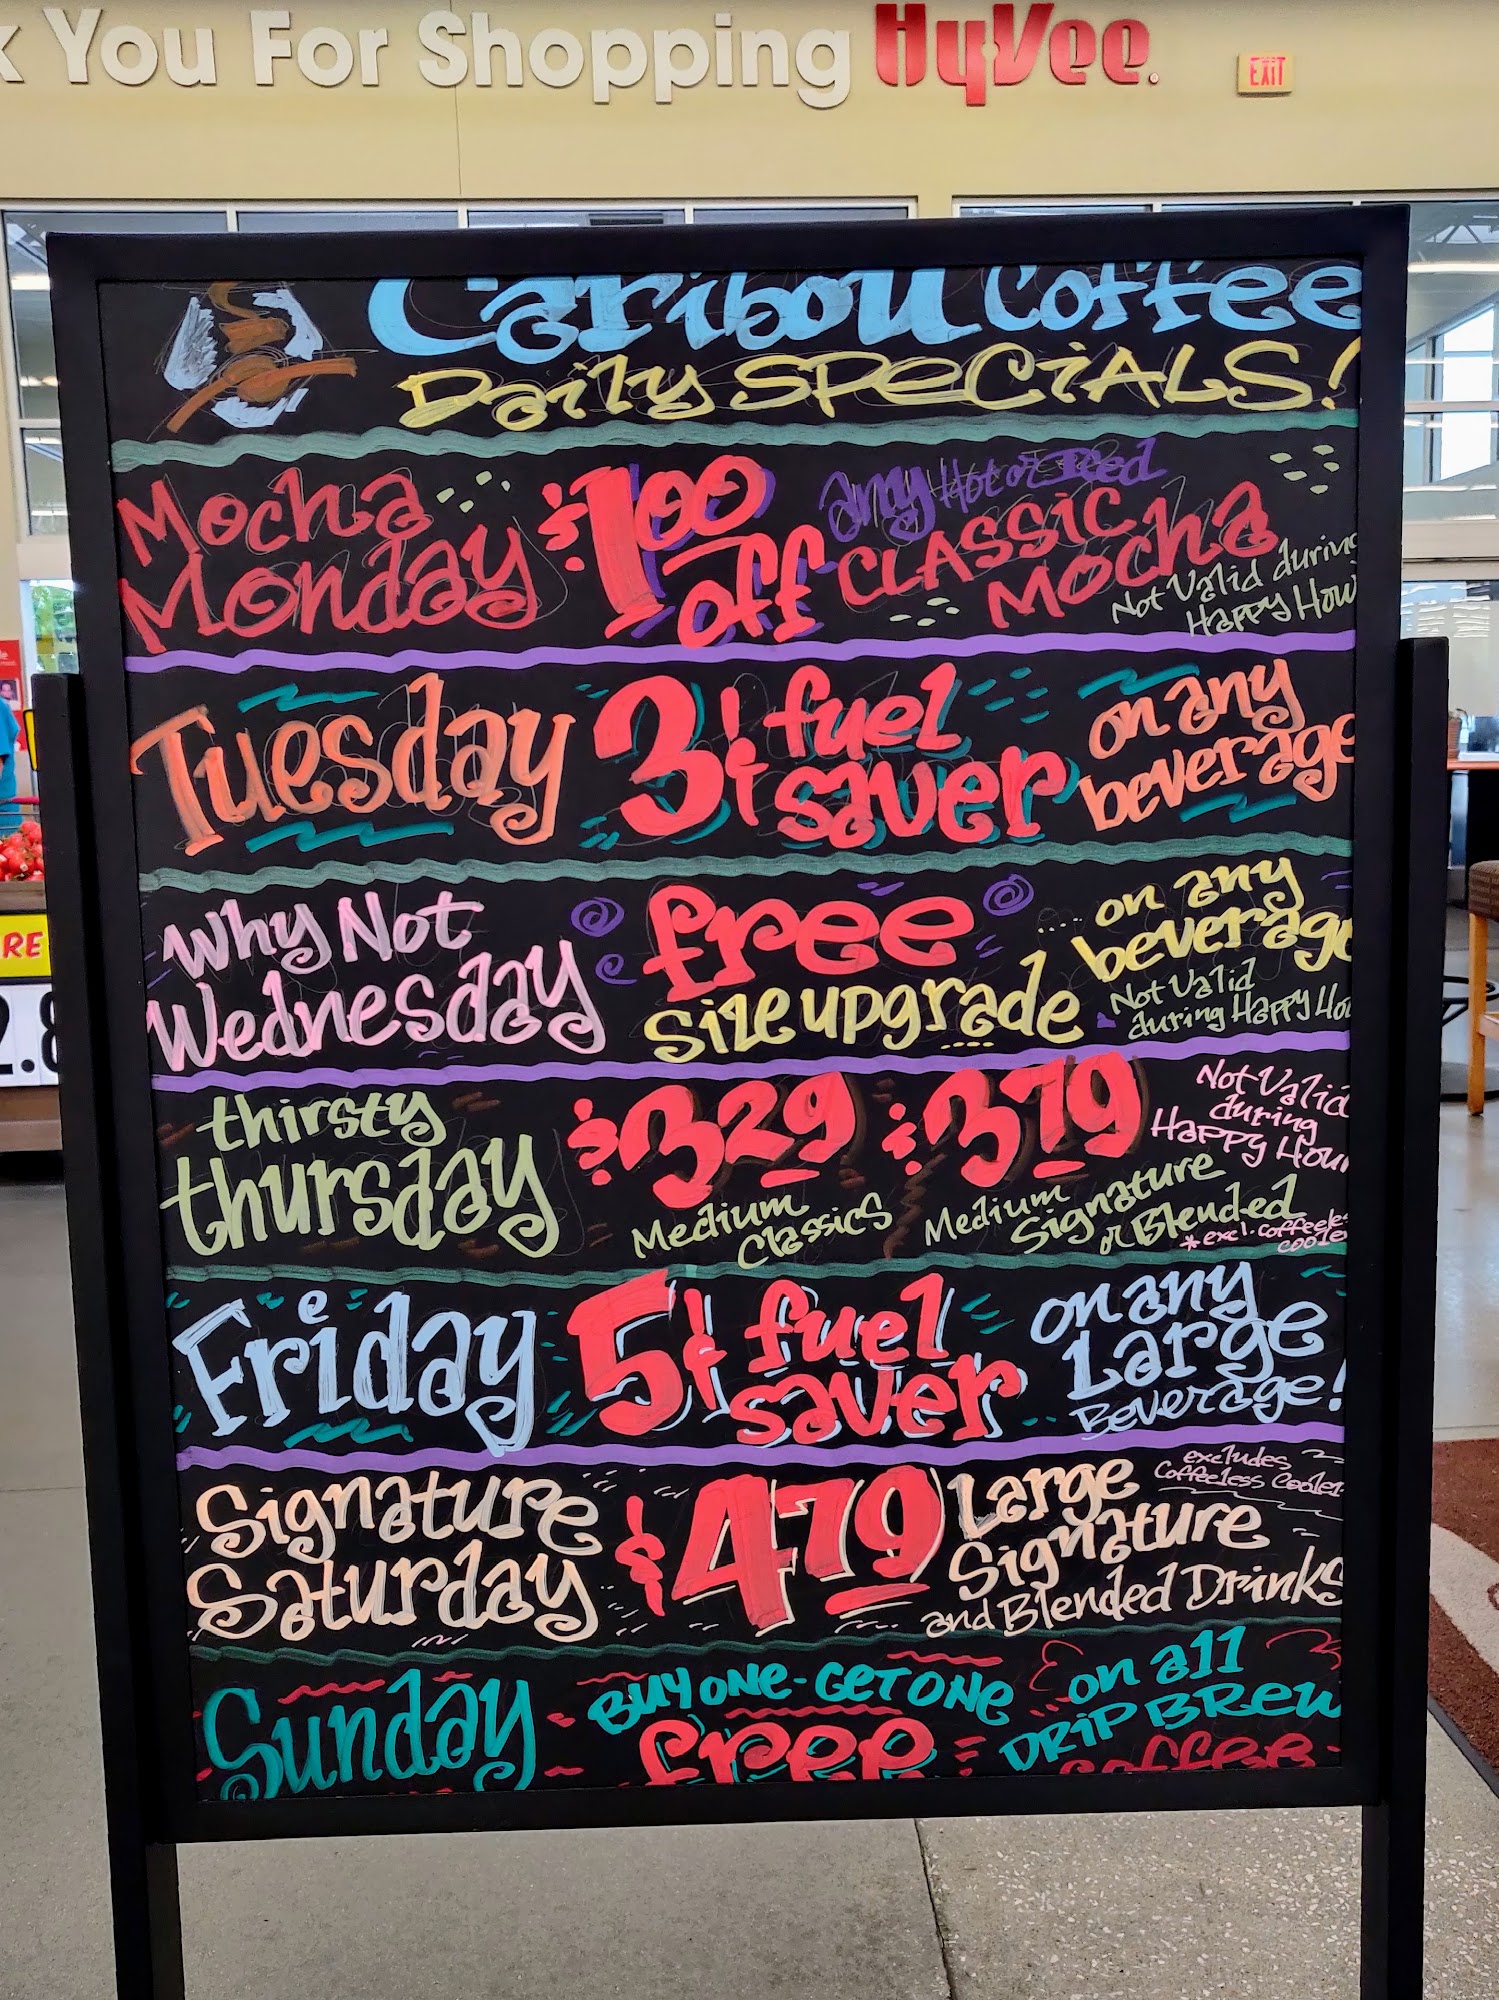 k You For Shopping HyVee
EXIT
Caribou Coffee
Daily SPECiALS!
Mocha Monday
$1.00 off
any Hot or Iced
CLASSiC Mocha
Not Valid during
Happy Hou
Tuesday
3¢ fuel saver
on any
beverage
Why Not
Wednesday
free
Size upgrade
on any
beverage
Not Valid
during Happy Hou
thirsty
thursday
$329
Medium
Classics
$379
Medium Signature
or Blended
Not Valid
during
Happy Hour
*excl. coffeele
coole
Friday
5¢ fuel
saver
on any
Large
Beverage!
Signature
Saturday
$479
Large
Signature
and Blended Drinks
excludes
Coffeeless Cooler
Sunday
BUY ONE-GET ONE
free
on all
DRiP BREW
coffee
ARE
2.8